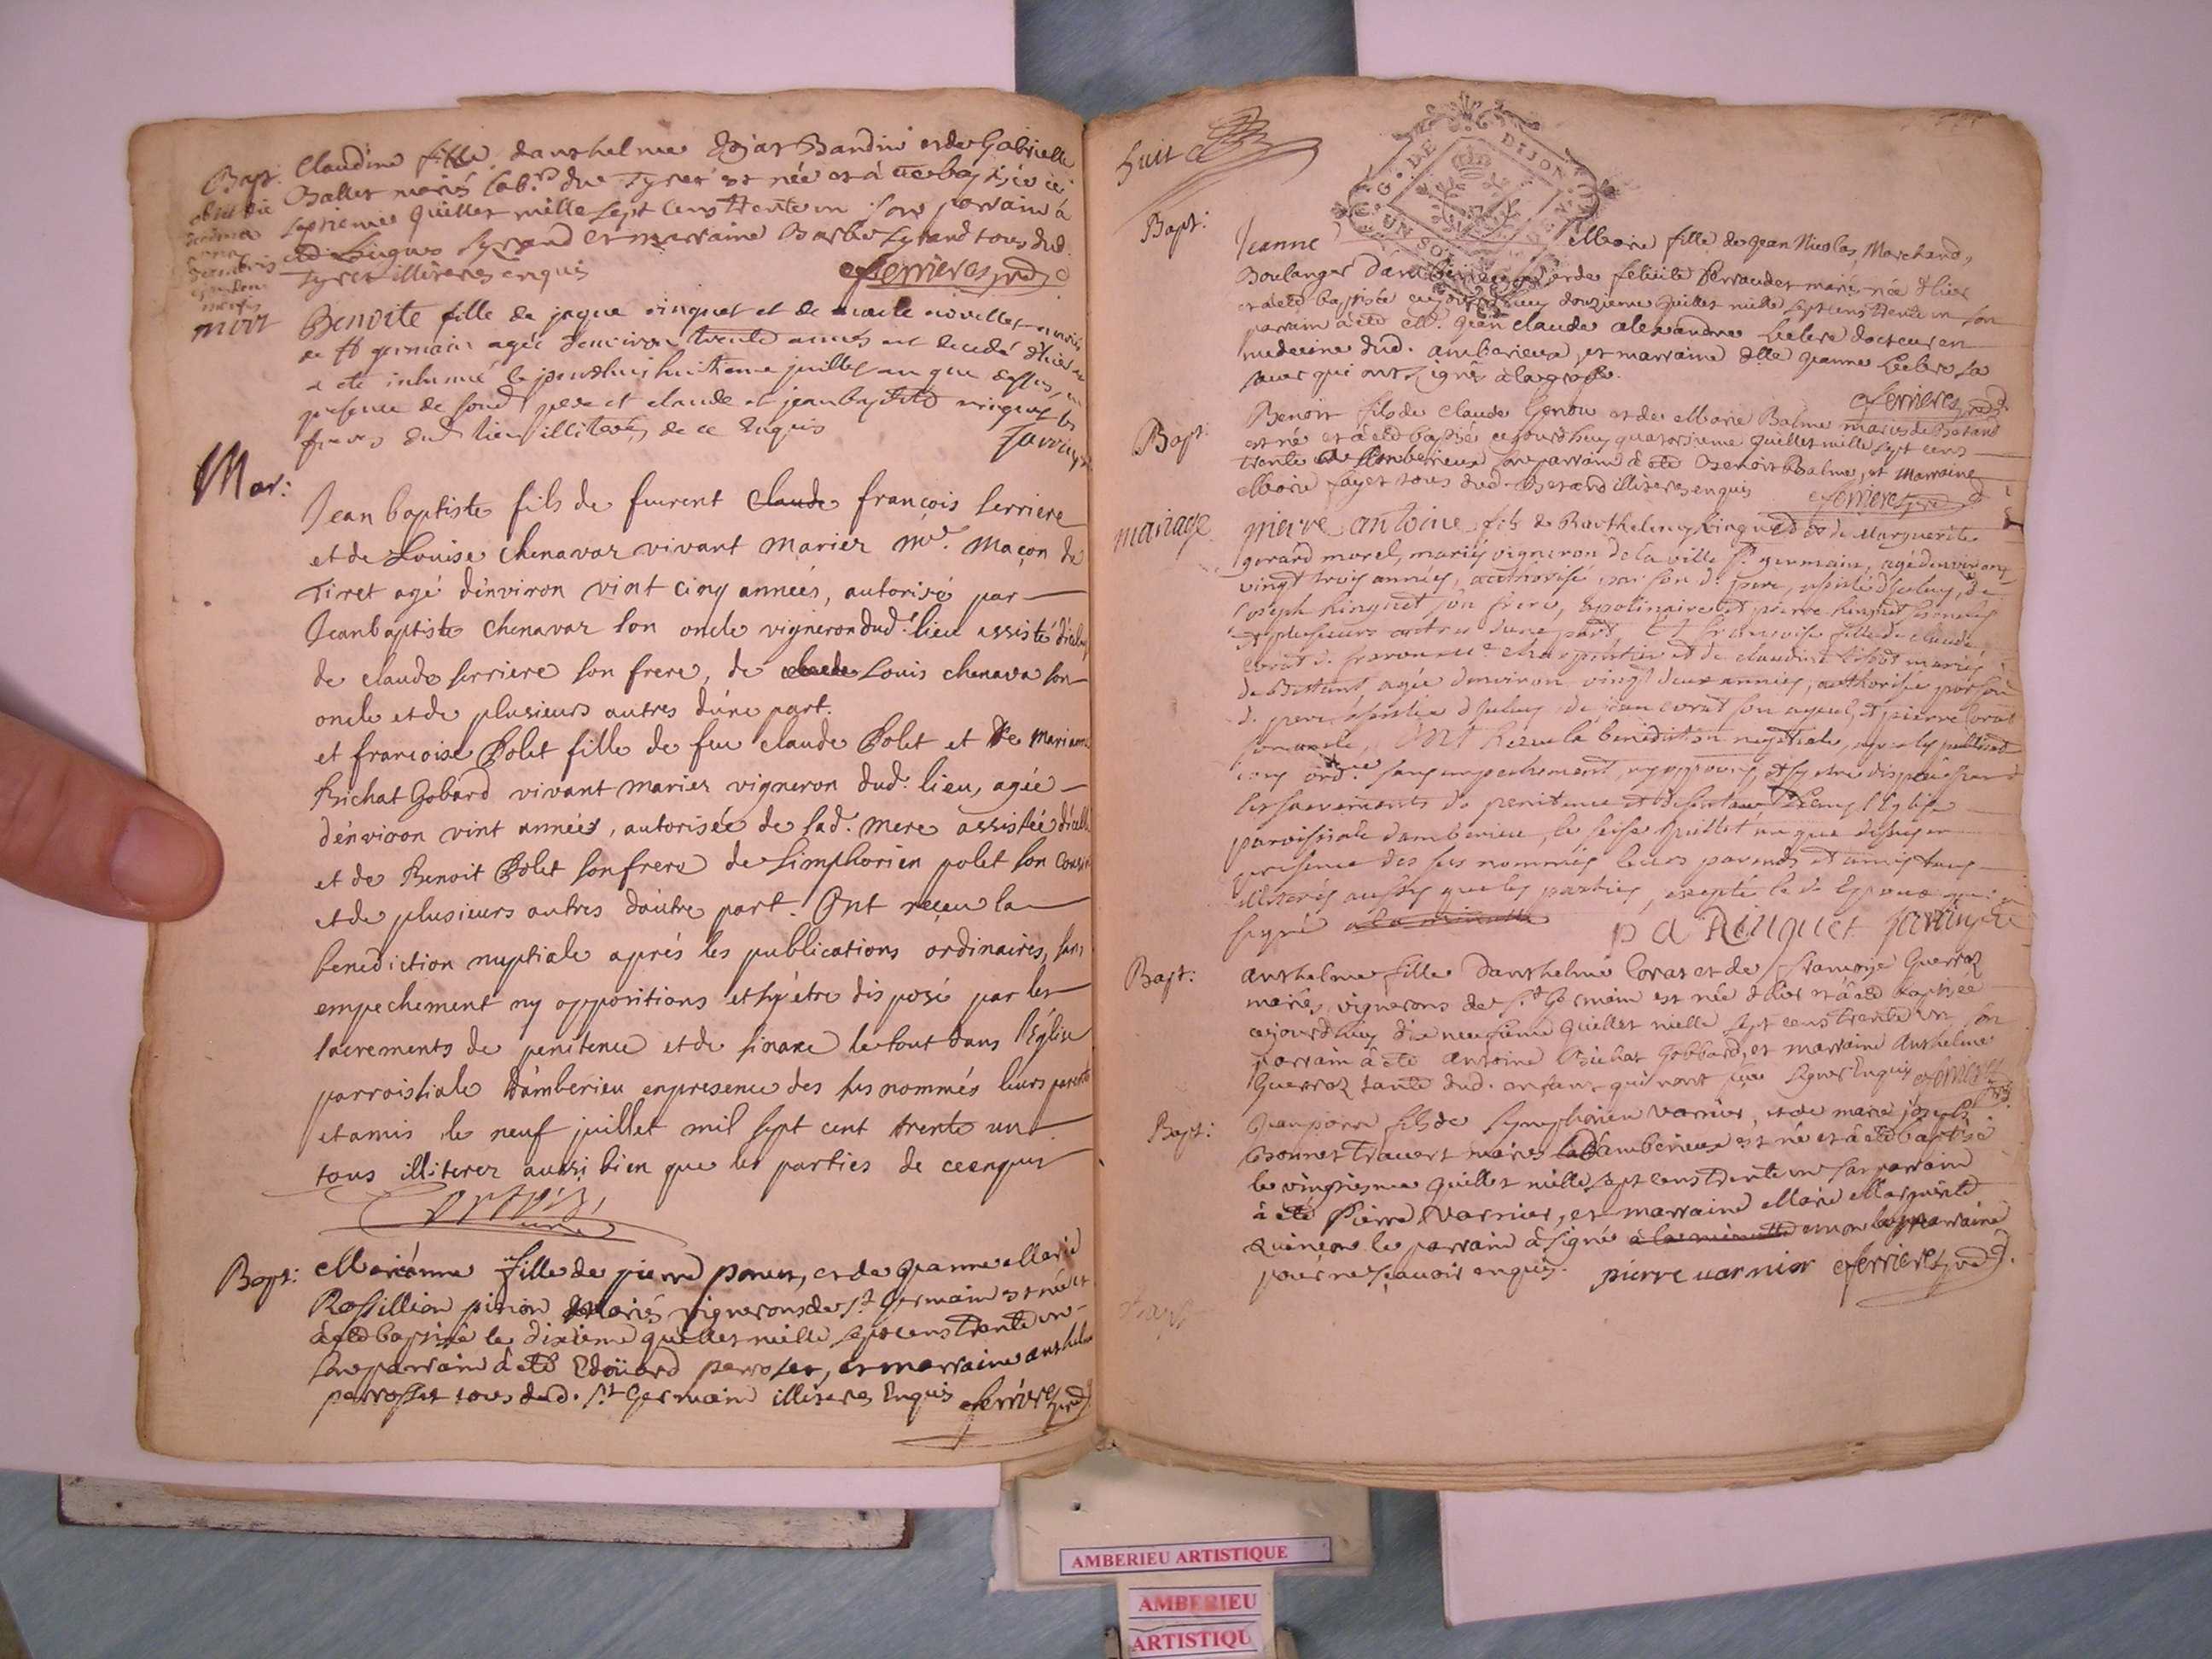 Bapt:
Claudine fille danthelme
Ballet mariés lab.rs de Tyret est née et à été baptisée ce
septieme Juillet mille sept cens trente un son parrain à
été et marraine Barbe tous dud.
Tyret illiteres enquis
eferrieres prd
mort
Benoite fille de jaque ringuet et de
de st germain agée denviron trente années est decedé d'hier et
a eté inhumé le jourdhuy huitieme juillet an que dessus, en
presence de sond pere et claude et jean baptiste ringuet ses
freres dud lieu illiterés de ce enquis
Mar:
Jean baptiste fils de furent claude françois serriere
et de Louise Chenavaz vivant mariez m.e Maçon de
Tiret agé d'environ vint cinq années, autorisé par
Jeanbaptiste Chenavaz son oncle vigneron dud. lieu assisté d'icelui
de claude serriere son frere, de claude Louis chenava son
oncle et de plusieurs autres d'une part.
et francoise Bolet fille de feu claude Bolet et de Marianne
Richat Gobard vivant mariez vigneron dud. lieu, agée
d'environ vint années, autorisée de sad. mere assistée d'icelle
et de Benoit Bolet son frere de Simphorien polet son Cousin
et de plusieurs autres d'autre part. Ont reçeu la
benediction nuptiale aprés les publications ordinaires, sans
empechement ny oppositions et s'y être disposé par les
sacrements de penitence et de sinaxe le tout dans l'Eglise
parroissiale d'amberieu en presence des sus nommés leurs parents
et amis le neuf juillet mil sept cent trente un
tous illiterez aussi bien que les parties de ce enquis
Bapt:
Marianne fille de pierre, et de Jeanne Marie
Rossillion pinion mariés vignerons de st Germain est née et
à été baptisée le dixieme Juillet mille sept cens trente un
son parrain à été Edoüard perrosset, et marraine anthelme
perrosset tous dud. st Germain illiteres Enquis eferrieres prd
huit
G. DE DIJON
UN SOL
Bapt:
Jeanne Marie fille de Jean Nicolas Marchand,
Boulanger et de felicité Perraudet mariés née d'hier
et a été baptisée ce jourdhuy douzieme Juillet mille sept cens trente un son
parain à été M.r Jean claude alexandre Leclerc docteur en
medecine dud. amberieux, et marraine d.lle Jeanne Leclerc sa
sœur qui ont signés
eferrieres prd
Bapt:
Benoit fils de claude Genou et de Marie Balme mariés de Betand
est né et à été baptisé ce jourdhuy quatorzieme Juillet mille sept cens
trente un son parrain à été Benoit Balme, et Marraine
Marie fayet tous dud. illiteres enquis eferrieres prd
mariage
pierre antoine fils de Barthelemy Ringuet et de Marguerite
gerard morel, mariés vigneron de la ville st. germain, agé denviron
vingt trois années, authorisé par son d. pere, assisté diceluy, de
Joseph Ringuet son frere, apolinaire et pierre Ringuet ses oncles
et plusieurs autres d'une part, Et francoise fille de claude
Corat charpentier et de claudine mariés
de Bettant, agée denviron vingt deux années, authorisée par son
d. pere, assistée diceluy, de jean corat son ayeul, et pierre Corat
son oncle, Ont Receu la benediction nuptiale, apres les publications
ord.res sans empechement, ny opposition, et s'y etre disposés par
les sacrements de penitence et dans l'Eglise
paroissiale damberieu, le seise Juillet an que dessus en
presence des sus nommés leurs parents et amis tous
illiterés aussy que les parties, excepté le d. Epoux qui a
signé à la minutte
p a Ringuet
Bapt:
anthelme fille danthelme Corat et de francoise Guerroz
mariés vignerons de st. Germain est née d'hier et à été baptisée
cejourdhuy dix neufieme Juillet mille sept cens trente un son
parrain à été antoine Bichat Gobbard, et marraine Anthelme
Guerroz tante dud. enfant qui n'ont sçeu signer Enquis
Bapt:
Jean pierre fils de Symphorien Varnier, et de marie joseph
Bonnet Travert mariés d'amberieux est né et à été baptisé
le vingtieme Juillet mille sept cens trente un son parrain
à été Pierre Varnier, et marraine Marie Marguerite
Quinçon le parrain à signé à la minutte et non la marraine
pour ne sçavoir enquis. pierre varnier eferrieres prd
Bapt
AMBERIEU ARTISTIQUE
AMBERIEU
ARTISTIQU